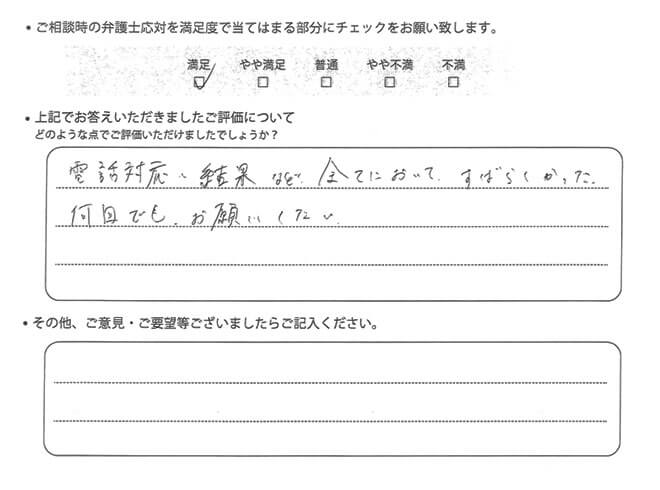 ・ご相談時の弁護士応対を満足度で当てはまる部分にチェックをお願い致します。
満足 やや満足 普通 やや不満 不満
・上記でお答えいただきましたご評価について
どのような点でご評価いただけましたでしょうか?
電話対応、結果など、全てにおいて、すばらしくかった。
何回でも、お願いしたい。
・その他、ご意見・ご要望等ございましたらご記入ください。